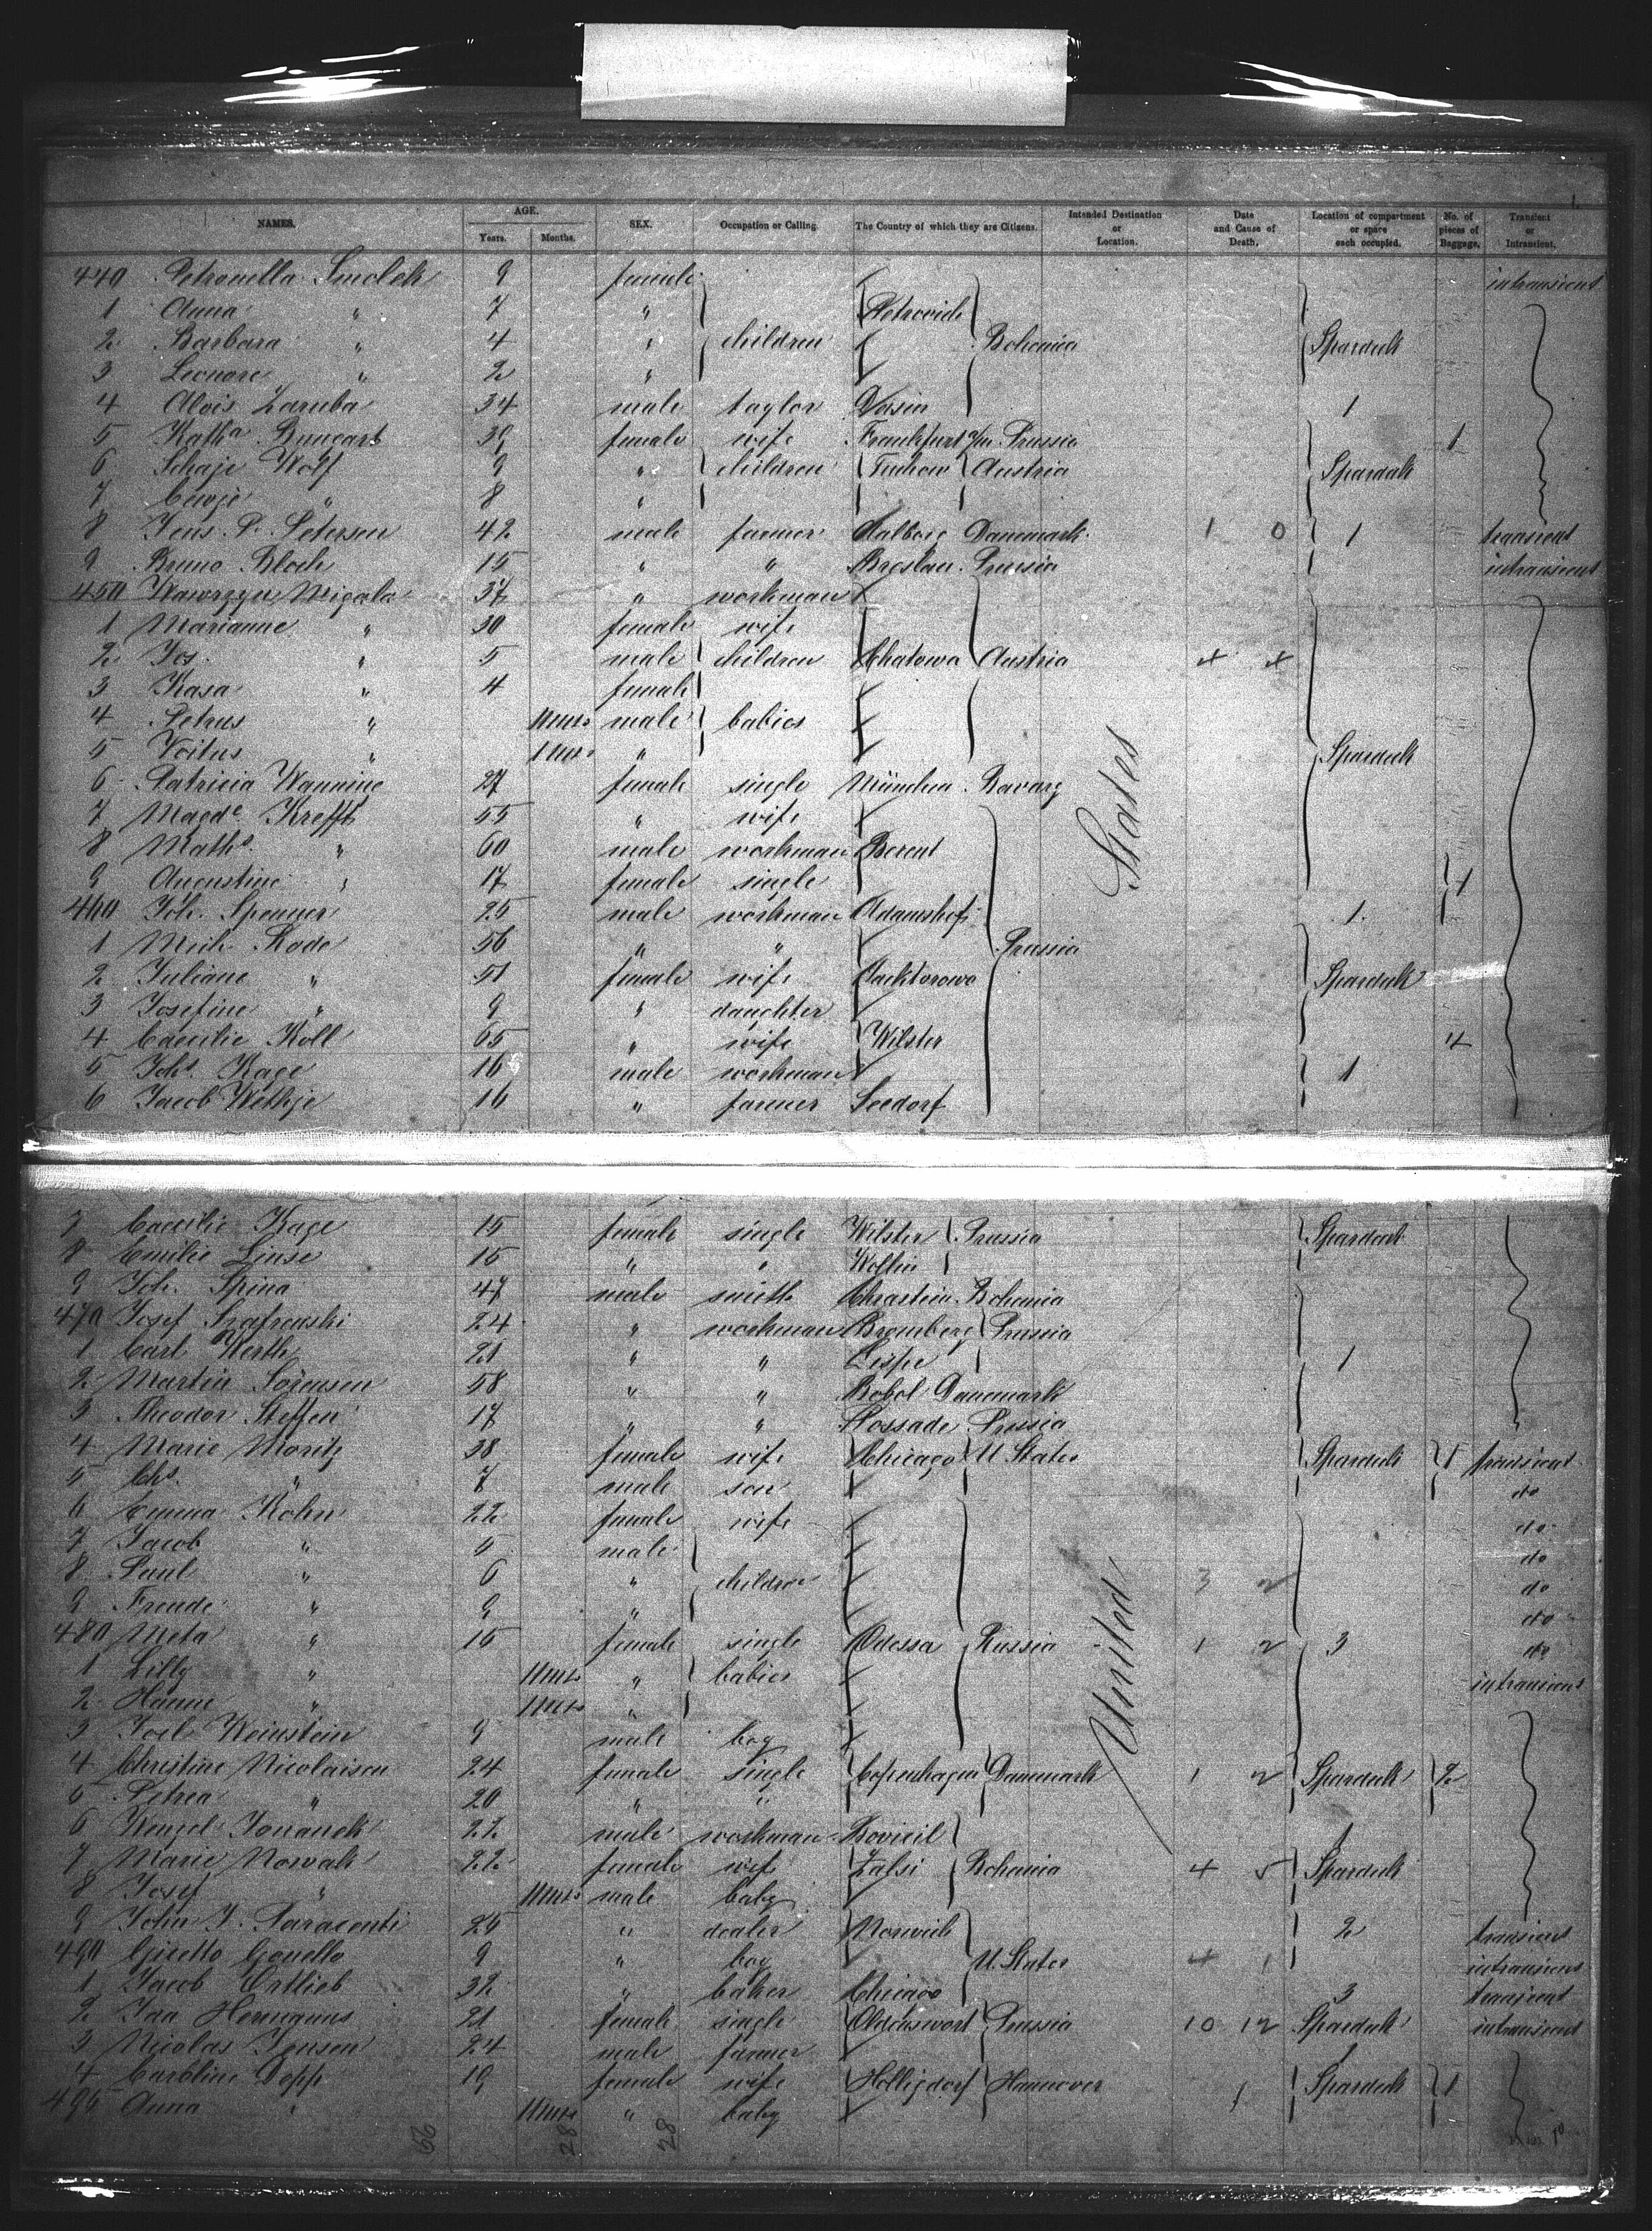 NAMES. AGE. Years. Months. SEX. Occupation or Calling The Country of which they are Citizens. Intended Destination or Location. Date and Cause of Death. Location of compartment or space each occupied. No. of pieces of Baggage. Transient or Intransient.
440 Petronella Smolek 9 female intransient
1 Anna " 7 "
2 Barbara " 4 " children Bohemia Spardeck
3 Leonore " 2 "
4 Alois Zaruba 34 male taylor 1
5 Kath^a 39 female wife Frankfurt a/m Prussia 1
6 Schaje Wolf 9 " children Tuchow Austria Spardeck
7 " 8 "
8 Jens P. Petersen 42 male farmer Aalborg Danemark 1 0 1 transient
9 Bruno Bloch 15 " " Breslau Prussia intransient
450 Wawrzyn Migala 37 " workman
1 Marianne " 30 female wife
2 Jos. " 5 male children Chatowa Austria 4 4
3 Kasa " 4 female
4 Petrus " 11 mts male babies
5 Voitus " 1 mt " Spardeck
6 Patricia Wanning 27 female single München Bavary
7 Magd^e Krefft 55 " wife
8 Math^s " 60 male workman Berent
9 Augustine " 17 female single 1
460 Joh. Spenner 25 male workman Adamshof 1
1 Mich. Rode 56 " " Prussia
2 Juliane " 51 female wife Jacktorowo Spardeck
3 Josefine " 9 " daughter
4 Caecilie Köll 65 " wife Wilster 4
5 Joh^s. Kage 16 male workman 1
6 Jacob Wethje 16 " farmer Seedorf
States
7 Caecilie Kage 15 female single Wilster Prussia Spardeck
8 Emilie Linse 15 " " Wollin
9 Joh. Spina 47 male smith Chrastin Bohemia
470 Josef Szafranski 24 " workman Bromberg Prussia
1 Carl Werth 21 " " Lispe 1
2 Martin Sörensen 58 " " Bobol Danemark
3 Theodor Steffen 17 " " Possade Prussia "
4 Marie Moritz 38 female wife Chicago U. States Spardeck 1 transient
5 Ch^s. " 7 male son do
6 Emma Kohn 22 female wife do
7 Jacob " 5 male do
8 Paul " 6 " children 3 2 do
9 Freude " 9 " do
480 Meta " 15 female single Odessa Russia 1 2 3 do
1 Lilly " 11 mts " babies intransient
2 Hanne " 11 mts "
3 Joel Weinstein 9 male boy
4 Christine Nicolaisen 24 female single Copenhagen Danemark 1 2 Spardeck 2
5 Petrea " 20 " "
6 Wenzel 22 male workman 1
7 Marie Nowak 22 female wife Zalsi Bohemia 4 5 Spardeck
8 Josef " 11 mts male baby
9 John J. 25 " dealer Norwich 2 transient
490 Gonello 9 " boy U. States 4 1 intransient
1 Jacob Ortlieb 32 " baker Chicago 3 transient
2 Ida 21 female single Oldenswort Prussia 10 12 Spardeck intransient
3 Nicolas Jensen 24 male farmer 1
4 Caroline Depp 19 female wife Hannover 1 Spardeck 1
495 Anna " 11 mts " baby
United
66 28 28